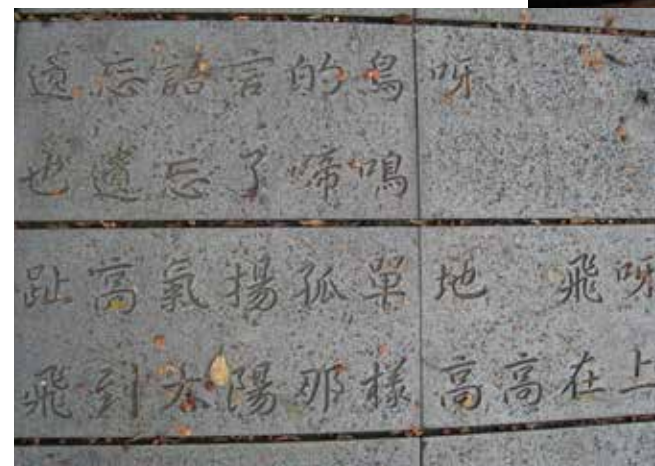 遺忘語言的鳥呀
也遺忘了啼鳴
趾高氣揚孤單地 飛呀
飛到太陽那樣高高在上